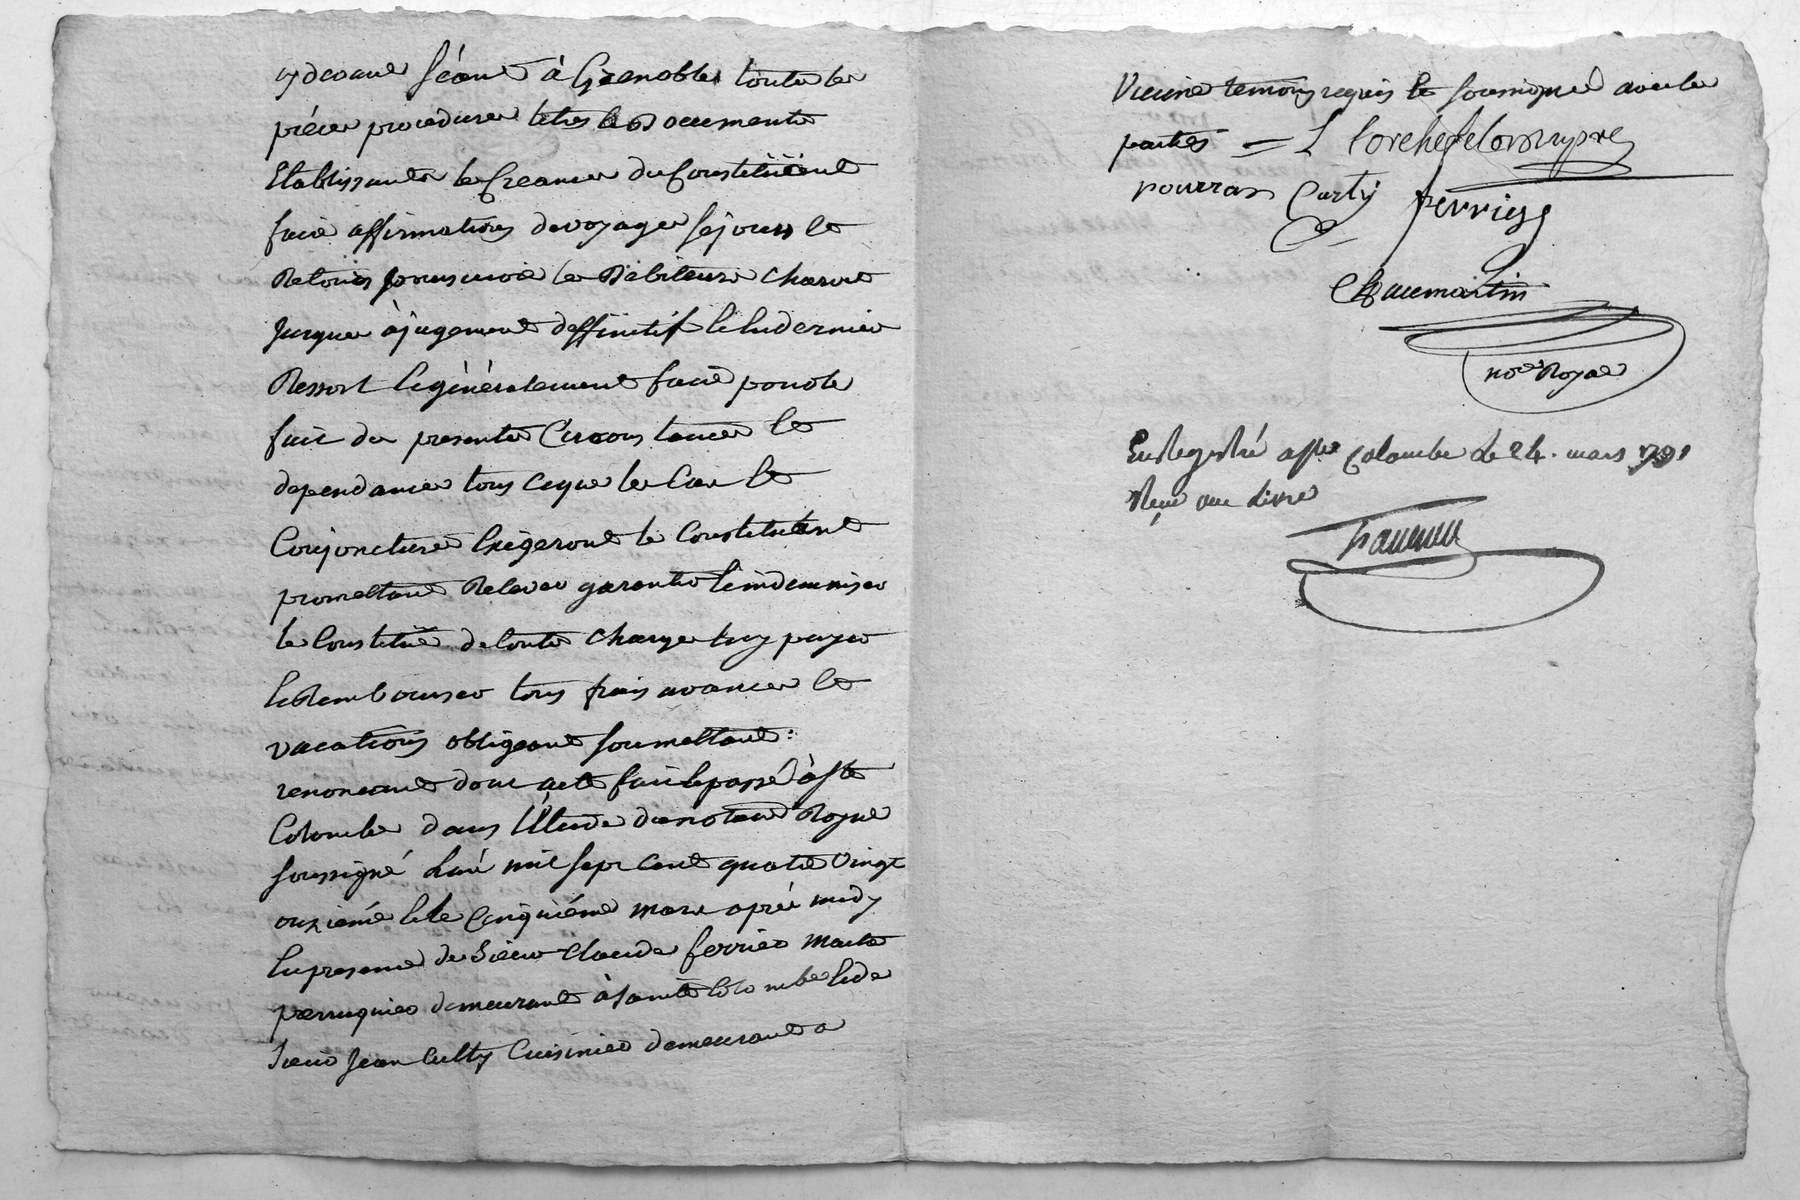 cy devant séant à Grenoble toutes les
pièces procedures titres et Documents
Etablissants les Creances du Constituant
faire affirmations de voyages séjours et
Retours poursuivre les Débiteurs
jusques à jugement deffinitif et en dernier
Ressort et généralement faire pour le
fait des presentes Circonstances et
dependances tous ce que les Cas et
Conjonctures Exigeront le Constituant
promettant Relever garentir et indemniser
le Constitué de toutes charges luy payer
et Rembourser tous frais avances et
vacations obligeant soumettant:
renonceant dont acte fait et passé à Ste
Colombe dans l'Etude du notaire Royal
soussigné L'an mil sept cent quatre vingt
onzieme et le Cinquiéme mars après midy
En presence de Sieur Claude ferrier Maitre
perruquier demeurant à Sainte Colombe et de
Sieur Jean Cutty Cuisinier demeurant a
Vienne temoins requis et soussignes avec les
parties =
Cutty ferrier
Chaumartin
nore Royal
Enregistré à Ste Colombe le 24. mars 1791
Reçu une Livre